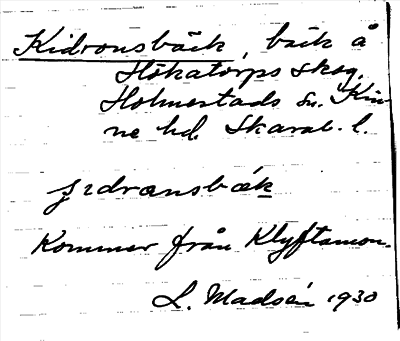 Kidronsbäck, bäck å
Hökatorps skog,
Holmestads sn. Kin-
ne hd. Skarab. l.
Kommer från Klyftamon.
L. Madsén 1930